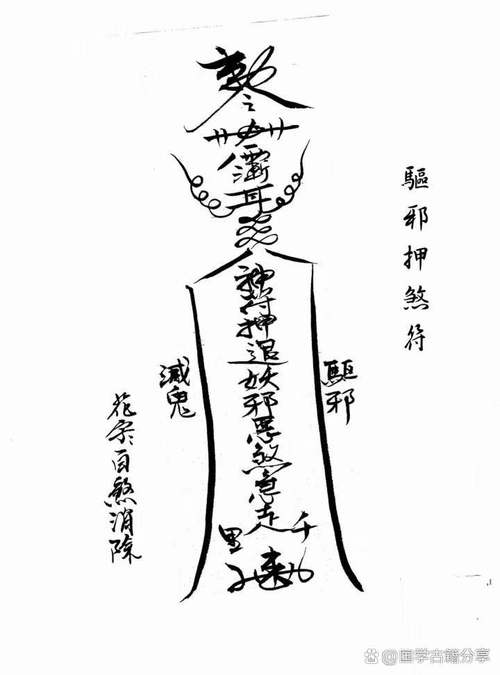 驅邪押煞符
驅邪
神符押退妖邪惡煞急走千里
滅鬼
花百煞消除
国学古籍分享